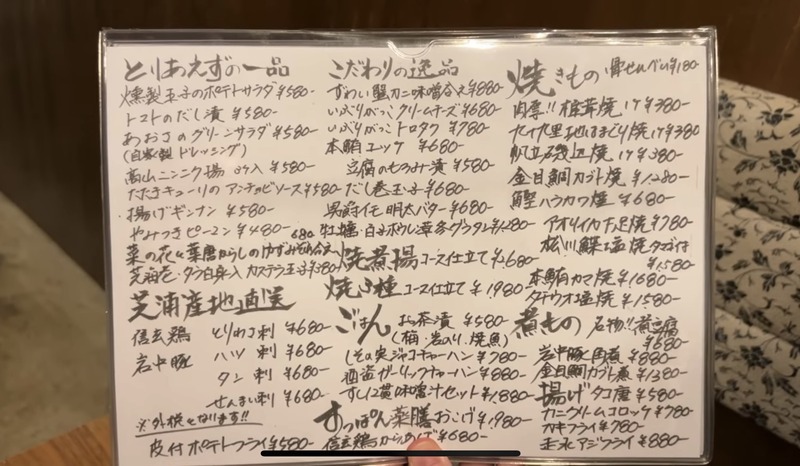 とりあえずの一品
燻製玉子のポテトサラダ ¥580-
トマトのだし漬 ¥580-
あおさのグリーンサラダ ¥580-
(自家製 ドレッシング)
ニンニク揚 ¥580-
たたきキューリのアンチョビソース ¥580-
揚げギンナン ¥580-
やみつきピーマン ¥480-
菜の花と葉唐がらしのゆずみそ和え 680-
芝海老・タラ白身入 カステラ玉子 ¥380-
芝浦産地直送
信玄鶏 とりわさ刺 ¥680-
岩中豚 ハツ刺 ¥680-
タン刺 ¥680-
せんまい刺 ¥680-
※外税となります!!
皮付ポテトフライ ¥580-
こだわりの逸品
ずわい蟹カニ味噌合え ¥880-
いぶりがっこクリームチーズ ¥680-
いぶりがっこトロタク ¥780-
本鮪ユッケ ¥680-
豆腐のもろみ漬 ¥580-
だし巻玉子 ¥680-
男爵イモ明太バター ¥680-
牡蠣・白子ポルシ茸各グラタン ¥1,280-
焼煮揚 コース仕立て ¥2,680-
焼3種 コース仕立て ¥1,980
ごはん お茶漬 ¥580-
(梅・岩のり・焼魚)
しその実ジャコチャーハン ¥780-
酒盗ガーリックチャーハン ¥880-
すし12貫味噌汁セット ¥1,880-
すっぽん薬膳おこげ ¥1,980
信玄鶏からあげ ¥680-
焼きもの 骨せんべい ¥180-
肉厚!! 椎茸焼 1ケ 380-
九十九里地はまぐり焼 1ケ ¥380
帆立磯辺焼 1ケ ¥380-
金目鯛カブト焼 ¥1,280-
鰹ハラカワ焼 ¥680-
アオリイカゲソ焼 ¥780
松川鰈塩焼 ¥1,580-
本鮪カマ焼 ¥1680-
タチウオ塩焼 ¥1,580-
煮もの 名物!! 煮豆腐 ¥680-
岩中豚ト角煮 ¥880-
金目鯛カブト煮 ¥1,380-
揚げ タコ唐 ¥580-
カニクリームコロッケ ¥780
カキフライ ¥780-
アジフライ ¥880-